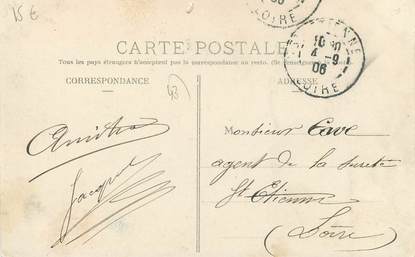 15 €
CARTE POSTALE
Tous les pays étrangers n'acceptent pas la correspondance au recto.
CORRESPONDANCE
ADRESSE
43
ETIENNE
10
4 -9
06
LOIRE
LOIRE
Amitiés
Jacques
Monsieur Cave
agent de la sureté
St Etienne
(Loire)